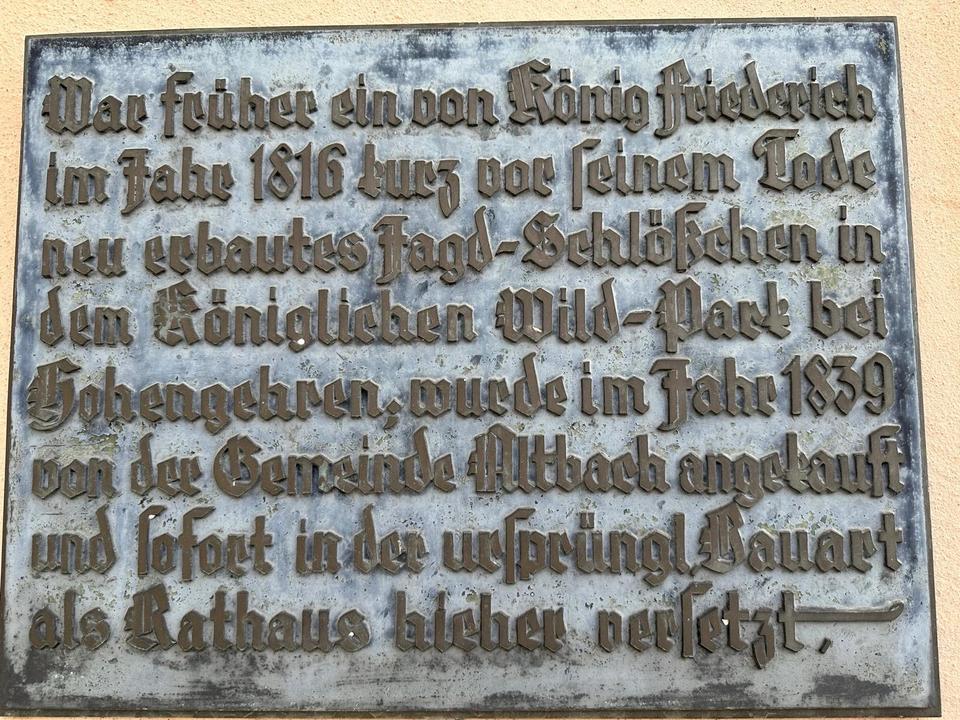 War früher ein von König Friederich
im Jahr 1816 kurz vor seinem Tode
neu erbautes Jagd-Schlößchen in
dem Königlichen Wild-Park bei
Hohengehren; wurde im Jahr 1839
von der Gemeinde Altbach angekauft
und sofort in der ursprüngl. Bauart
als Rathaus hieher versetzt.